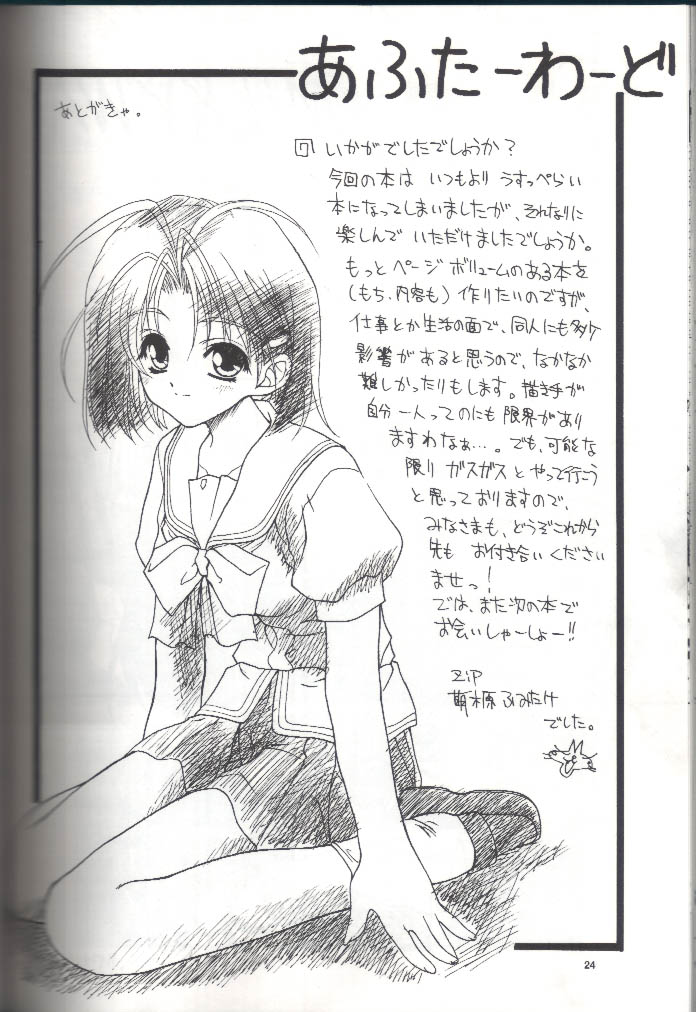 あふたーわーど
あとがきゃ。
いかがでしたでしょうか？
今回の本は いつもより うすっぺらい
本になってしまいましたが、それなりに
楽しんで いただけましたでしょうか。
もっと ページ ボリュームのある本を
（もち、内容も）作りたいのですが、
仕事とか生活の面で、同人にも多少
影響があると思うので、なかなか
難しかったりもします。描き手が
自分一人ってのにも 限界があり
ますわなぁ…。でも、可能な
限り ガスガスと やって行こう
と思っておりますので、
みなさまも、どうぞこれから
先も お付き合いください
ませっ！
では、また次の本で
お会いしゃーしょー!!
ZiP
萌木原 ふみたけ
でした。
24